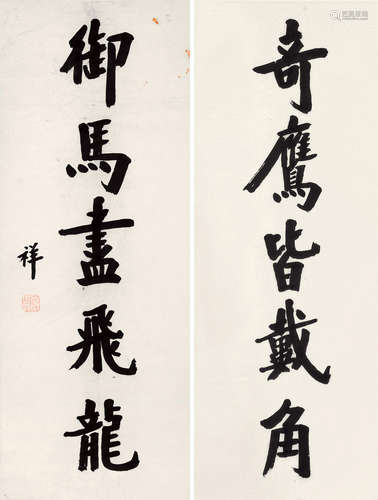 奇鷹皆戴角
御馬盡飛龍
祥